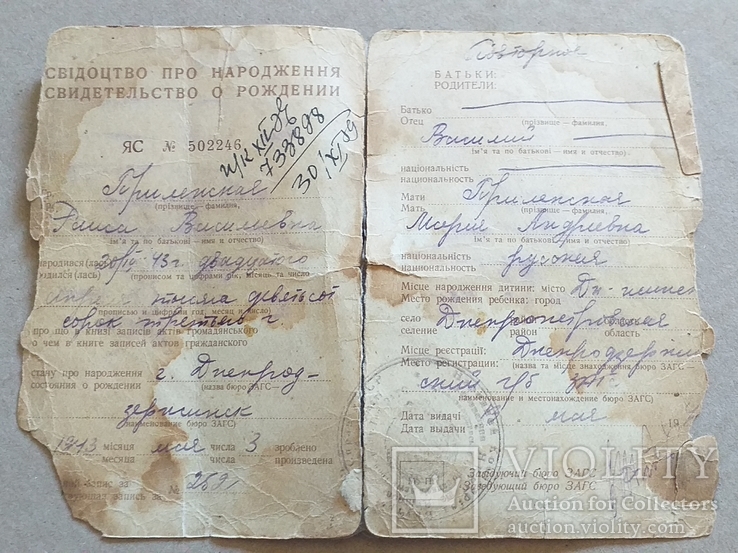 СВІДОЦТВО ПРО НАРОДЖЕННЯ
СВИДЕТЕЛЬСТВО О РОЖДЕНИИ
ЯС № 502246
п/к XII-ОЬ
739898
30/XI 79
Прилепская
(прізвище – фамилия,
Раиса Васильевна
ім'я та по батькові – имя и отчество)
народився (лась) 20/IV 43 г двадцатого
(прописом та цифрами рік, місяць та число
апреля тысяча девятьсот
прописью и цифрами год, месяц и число)
сорок третьего г
про що в книзі записів актів громадянського
о чем в книге записей актов гражданского
стану про народження г. Днепрод-
состояния о рождении (назва бюро ЗАГС –
зержинск
наименование бюро ЗАГС)
1943 місяця мая числа 3 зроблено
месяца числа произведена
запис за № 269
Повторное
БАТЬКИ:
РОДИТЕЛИ:
Батько
Отец (прізвище – фамилия,
Василий
ім'я та по батькові – имя и отчество)
національність
национальность
Мати Прилепская
Мать (прізвище – фамилия,
Мария Андреевна
ім'я та по батькові – имя и отчество)
національність русская
национальность
Місце народження дитини: місто
Место рождения ребенка: город
село Днепропетровская
селение район область
Місце реєстрації: Днепродзержин
Место регистрации: (назва та місцезнаходження бюро ЗАГС –
ский г/б ЗАГС
наименование и местонахождение бюро ЗАГС)
Дата видачі мая 19
Дата выдачи
Завідуючий бюро ЗАГС
Заведующий бюро ЗАГС
VIOLITY
Auction for Collectors
auction.violity.com